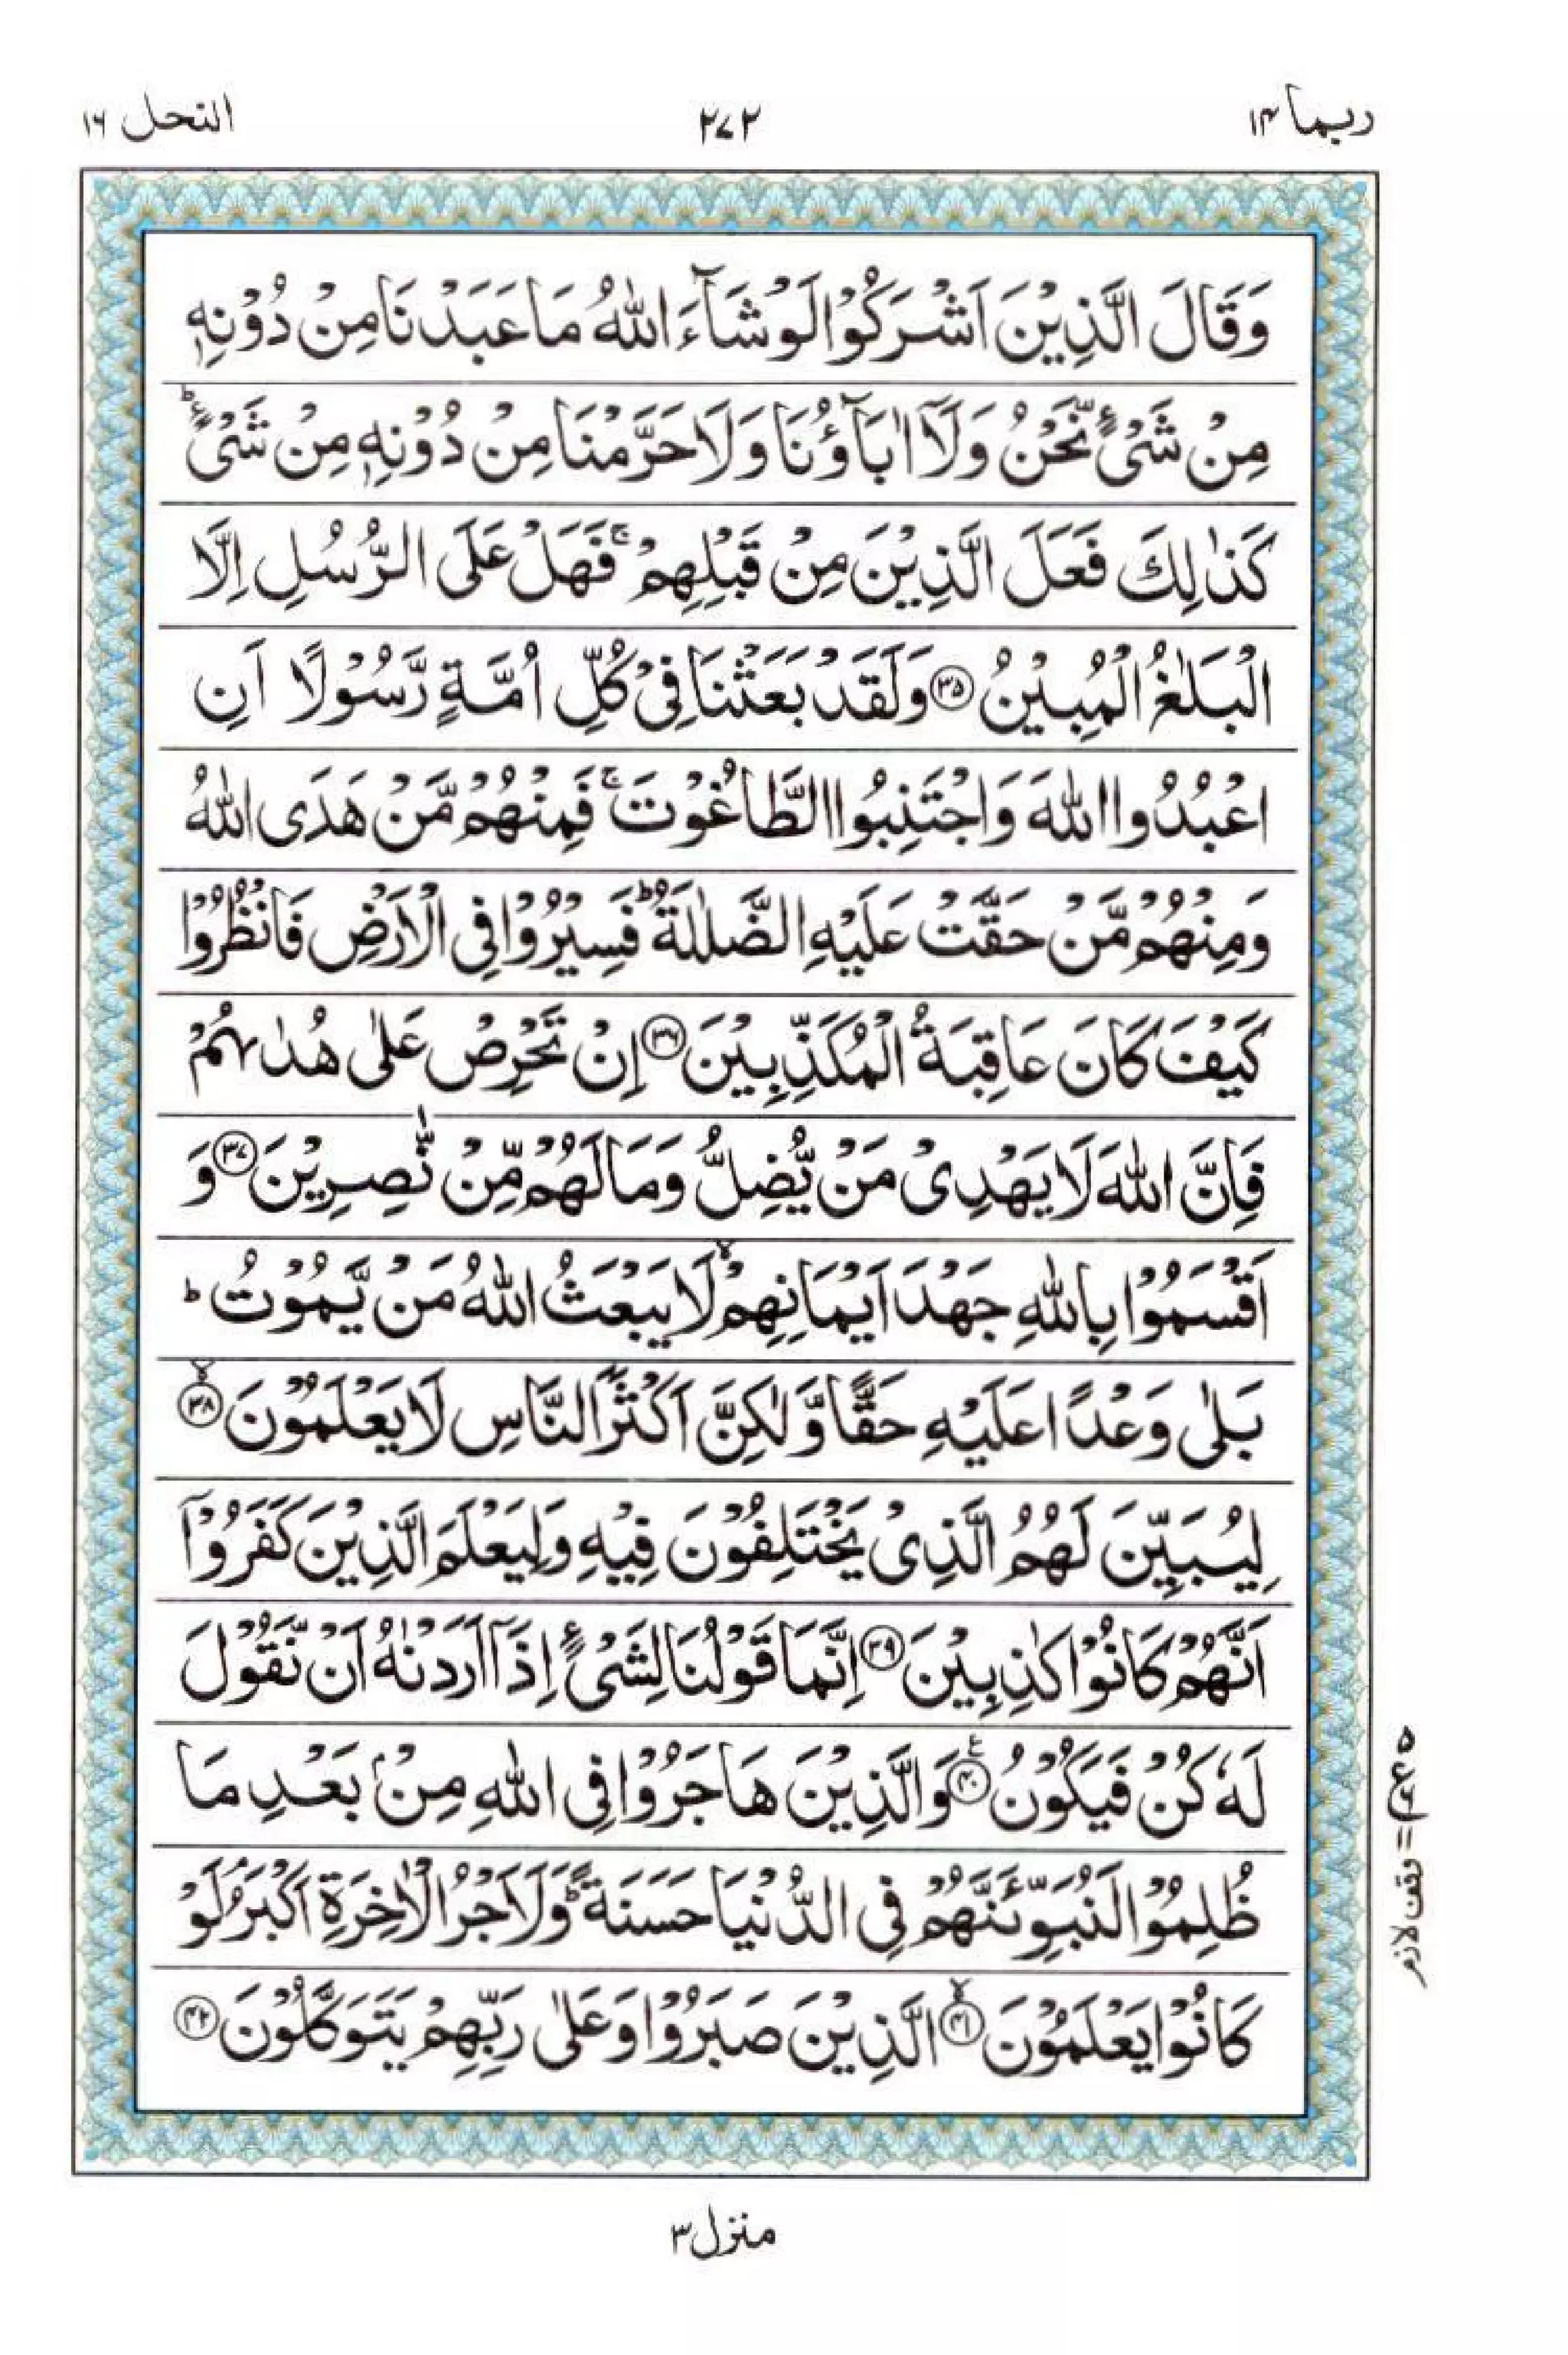 ربما ١٤
٢٧٢
النحل ١٦
وَقَالَ الَّذِيْنَ اَشْرَكُوْا لَوْ شَآءَ اللّٰهُ مَا عَبَدْنَا مِنْ دُوْنِهٖ
مِنْ شَىْءٍ نَّحْنُ وَلَاۤ اٰبَآؤُنَا وَلَا حَرَّمْنَا مِنْ دُوْنِهٖ مِنْ شَىْءٍ ؕ
كَذٰلِكَ فَعَلَ الَّذِيْنَ مِنْ قَبْلِهِمْ ۚ فَهَلْ عَلَى الرُّسُلِ اِلَّا
الْبَلٰغُ الْمُبِيْنُ ﴿٣٥﴾ وَلَقَدْ بَعَثْنَا فِىْ كُلِّ اُمَّةٍ رَّسُوْلًا اَنِ
اعْبُدُوا اللّٰهَ وَاجْتَنِبُوا الطَّاغُوْتَ ۚ فَمِنْهُمْ مَّنْ هَدَى اللّٰهُ
وَمِنْهُمْ مَّنْ حَقَّتْ عَلَيْهِ الضَّلٰلَةُ ؕ فَسِيْرُوْا فِى الْاَرْضِ فَانْظُرُوْا
كَيْفَ كَانَ عَاقِبَةُ الْمُكَذِّبِيْنَ ﴿٣٦﴾ اِنْ تَحْرِصْ عَلٰى هُدٰىهُمْ
فَاِنَّ اللّٰهَ لَا يَهْدِىْ مَنْ يُّضِلُّ وَمَا لَهُمْ مِّنْ نّٰصِرِيْنَ ﴿٣٧﴾ وَ
اَقْسَمُوْا بِاللّٰهِ جَهْدَ اَيْمَانِهِمْ ۙ لَا يَبْعَثُ اللّٰهُ مَنْ يَّمُوْتُ ؕ
بَلٰى وَعْدًا عَلَيْهِ حَقًّا وَّلٰكِنَّ اَكْثَرَ النَّاسِ لَا يَعْلَمُوْنَ ﴿٣٨﴾ ۙ
لِيُبَيِّنَ لَهُمُ الَّذِىْ يَخْتَلِفُوْنَ فِيْهِ وَلِيَعْلَمَ الَّذِيْنَ كَفَرُوْۤا
اَنَّهُمْ كَانُوْا كٰذِبِيْنَ ﴿٣٩﴾ اِنَّمَا قَوْلُنَا لِشَىْءٍ اِذَاۤ اَرَدْنٰهُ اَنْ نَّقُوْلَ
لَهٗ كُنْ فَيَكُوْنُ ﴿٤٠﴾ وَالَّذِيْنَ هَاجَرُوْا فِى اللّٰهِ مِنْۢ بَعْدِ مَا
ظُلِمُوْا لَنُبَوِّئَنَّهُمْ فِى الدُّنْيَا حَسَنَةً ؕ وَلَاَجْرُ الْاٰخِرَةِ اَكْبَرُ ۘ لَوْ
كَانُوْا يَعْلَمُوْنَ ﴿٤١﴾ ۙ الَّذِيْنَ صَبَرُوْا وَعَلٰى رَبِّهِمْ يَتَوَكَّلُوْنَ ﴿٤٢﴾
وقف لازم
منزل ٣